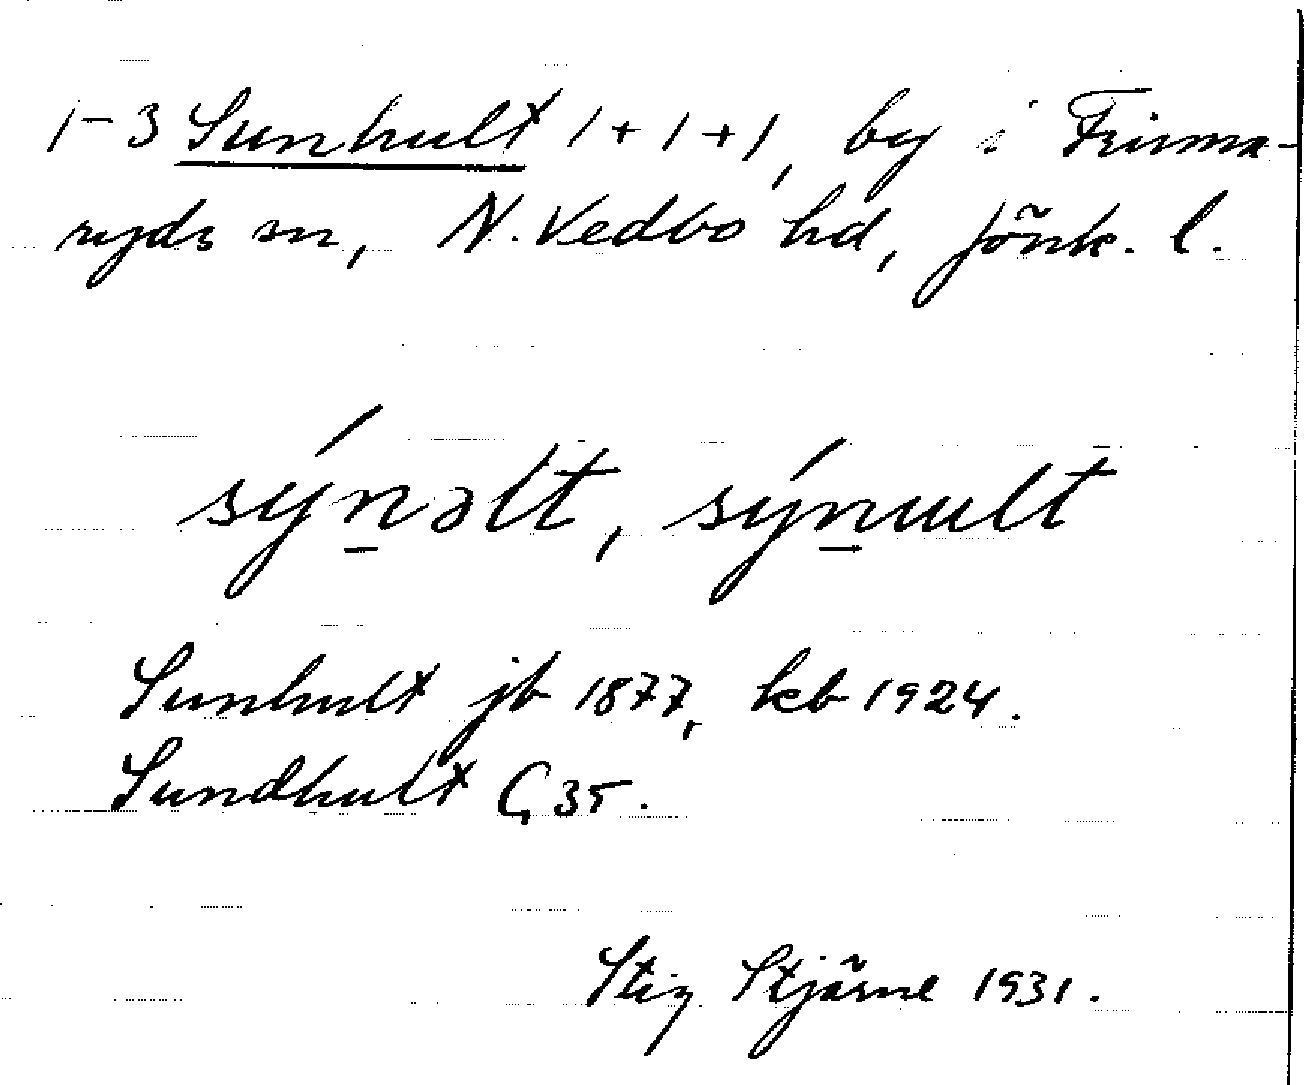 1-3 Sunhult 1+1+1, by i Frinna-
ryds sn, N. Vedbo hd, Jönk. l.
sýn̠əlt, sýn̠uult
Sunhult jb 1877, kb 1924.
Sundhult G 35.
Stig Stjärne 1931.